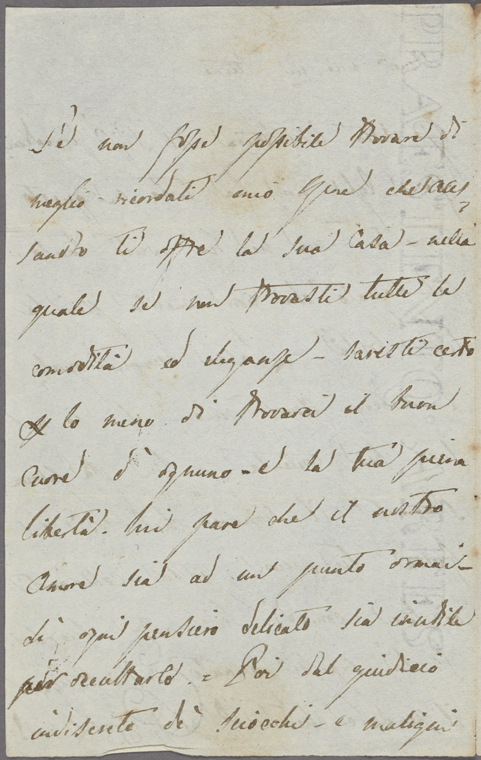 Sè non fosse possibile trovare di
meglio ricordati mio Bene che Ales=
sandro ti offre la sua Casa – nella
quale se non trovasti tutte le
comodità ed eleganze – saresti certo
lo meno di trovarci il buon
Cuore d'ognuno – e la tua piena
libertà. Mi pare che il nostro
Amore sia ad un punto ormai –
di ogni pensiero delicato sia inutile
per occultarlo. = Poi dal giudicio
indiscreto di sciocchi – e maligni